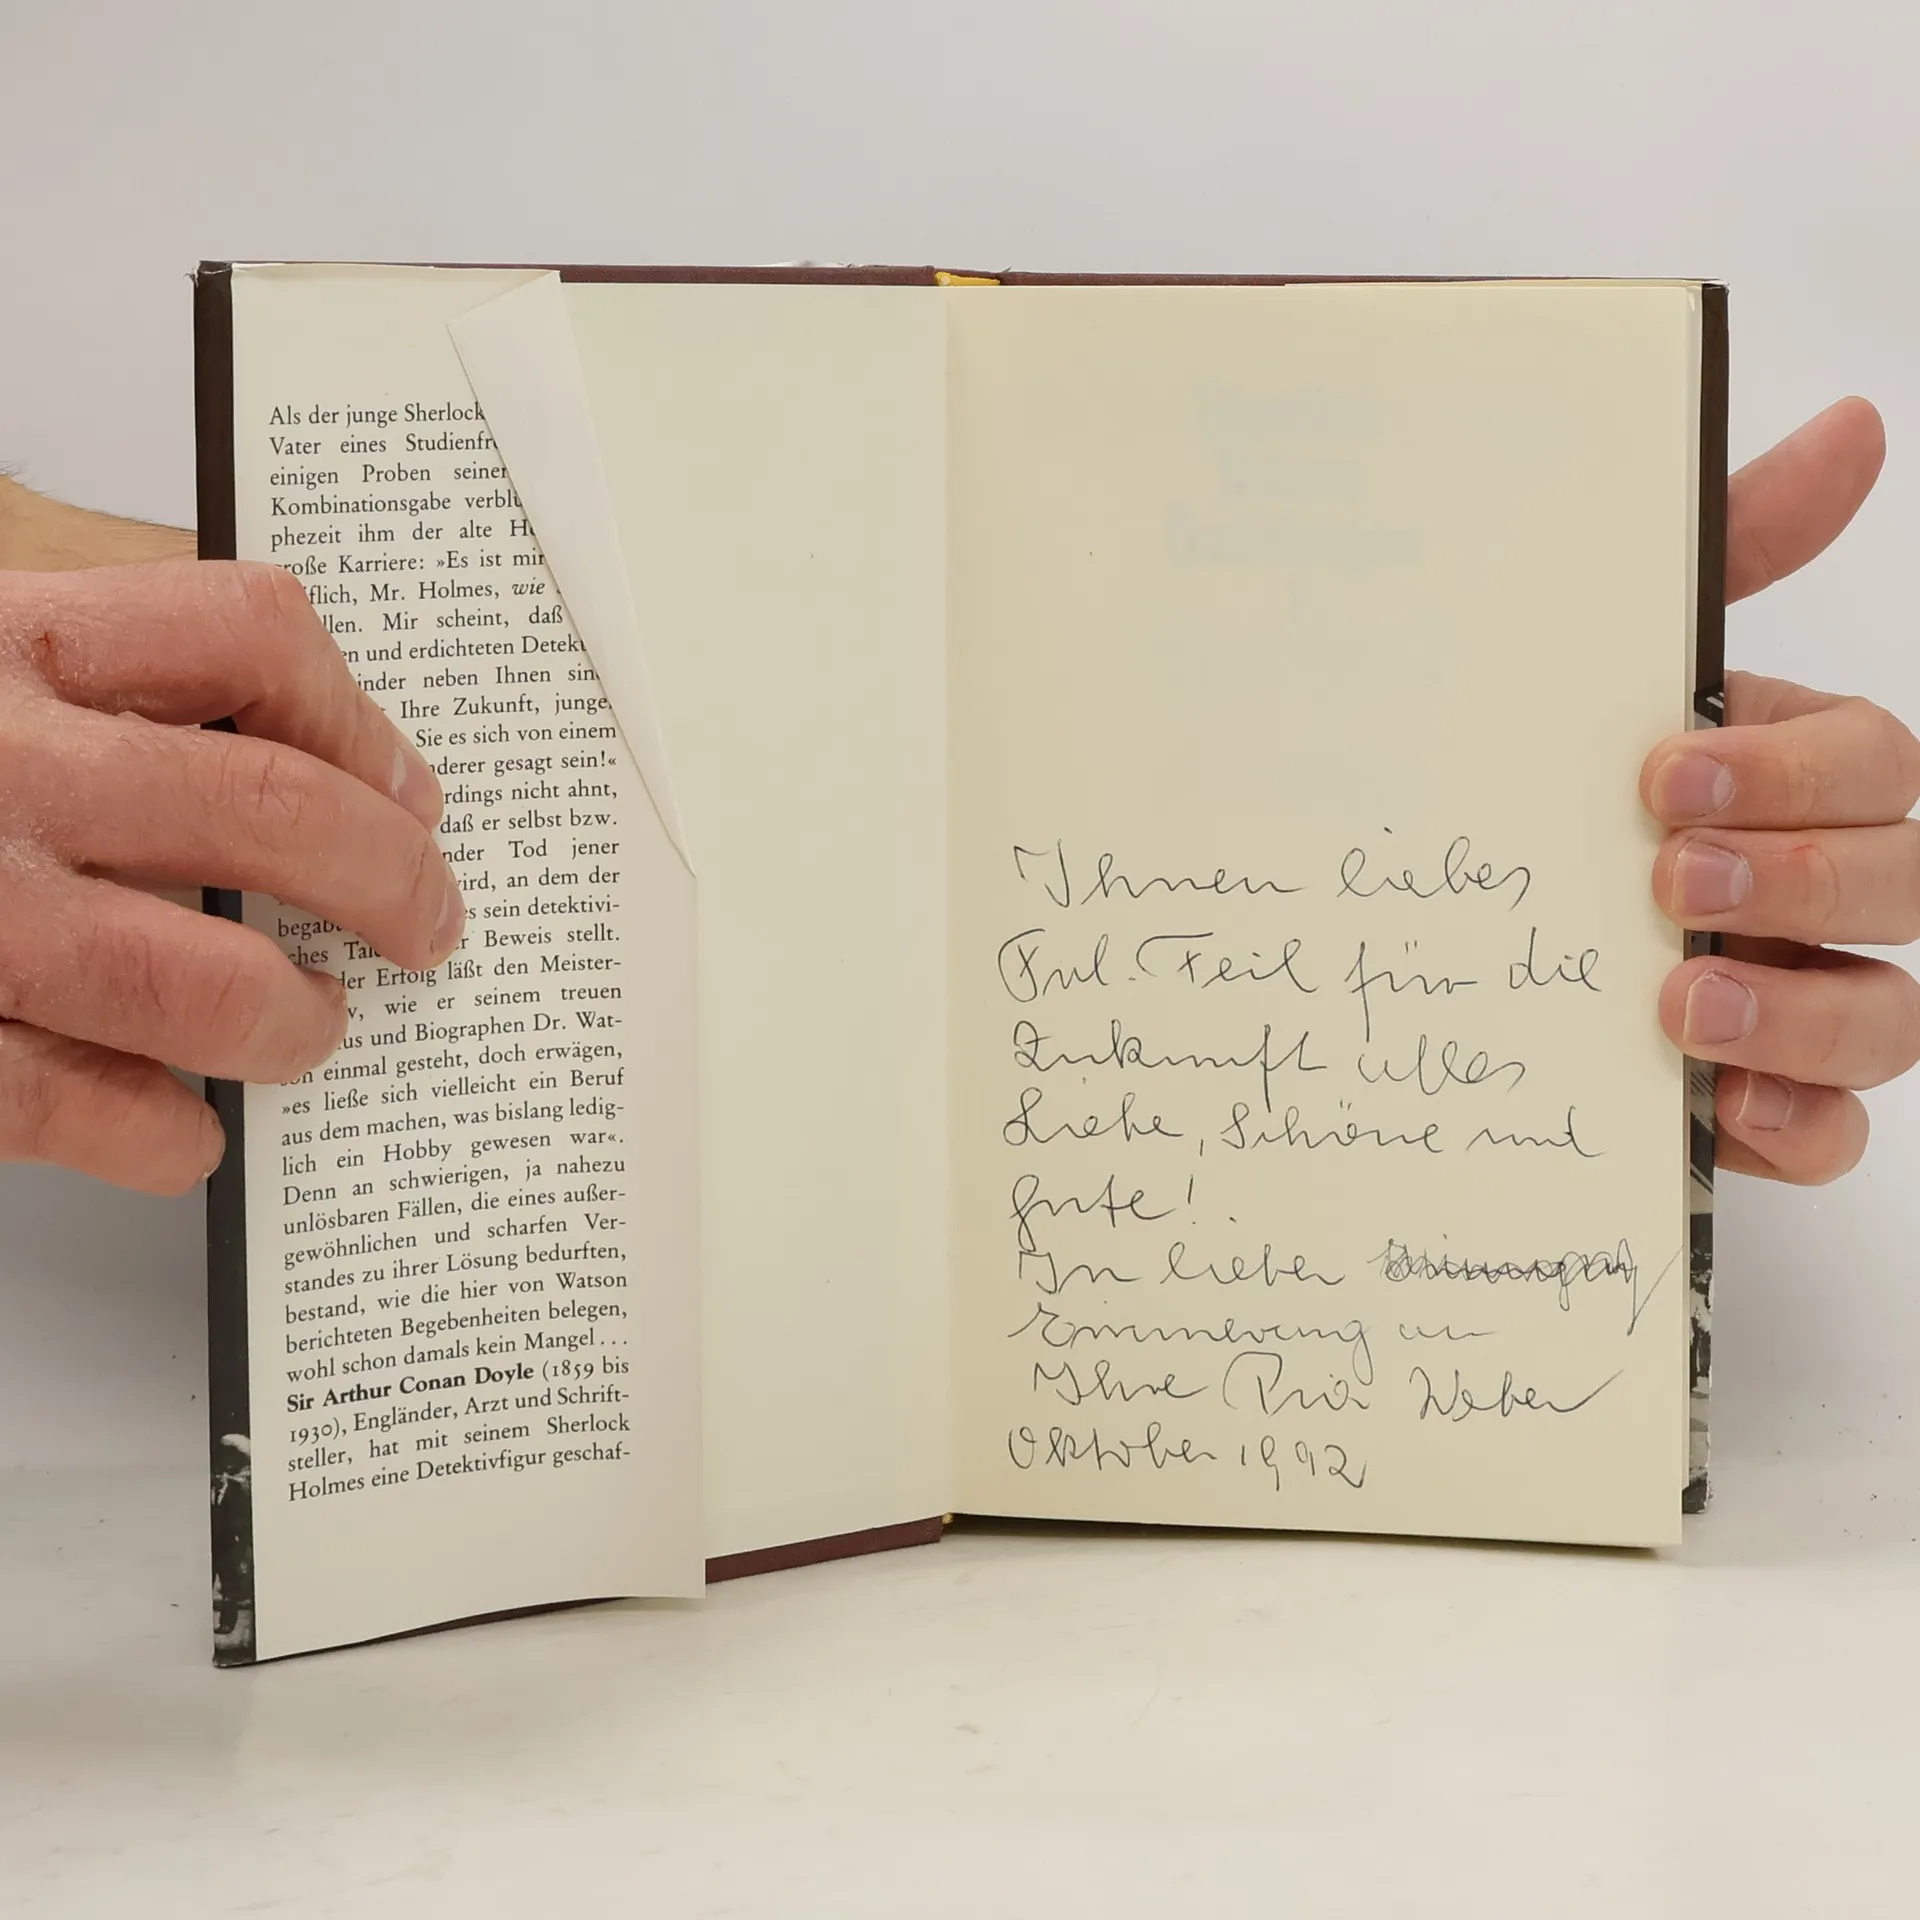 Als der junge Sherlock
Vater eines Studienfre
einigen Proben seiner
Kombinationsgabe verblü
phezeit ihm der alte
große Karriere: »Es ist mir
flich, Mr. Holmes, wie
llen. Mir scheint, daß
en und erdichteten Detek
inder neben Ihnen sin
Ihre Zukunft, junge
Sie es sich von einem
nderer gesagt sein!«
rdings nicht ahnt,
daß er selbst bzw.
nder Tod jener
ird, an dem der
es sein detektivi-
begab
ches Tal er Beweis stellt.
der Erfolg läßt den Meister-
v, wie er seinem treuen
us und Biographen Dr. Wat-
son einmal gesteht, doch erwägen,
»es ließe sich vielleicht ein Beruf
aus dem machen, was bislang ledig-
lich ein Hobby gewesen war«.
Denn an schwierigen, ja nahezu
unlösbaren Fällen, die eines außer-
gewöhnlichen und scharfen Ver-
standes zu ihrer Lösung bedurften,
bestand, wie die hier von Watson
berichteten Begebenheiten belegen,
wohl schon damals kein Mangel...
Sir Arthur Conan Doyle (1859 bis
1930), Engländer, Arzt und Schrift-
steller, hat mit seinem Sherlock
Holmes eine Detektivfigur geschaf-
Ihnen liebes
Frl. Feil für die
Zukunft alles
Liebe, Schöne und
Gute!
In lieber
Erinnerung an
Ihre Weber
Oktober 1992